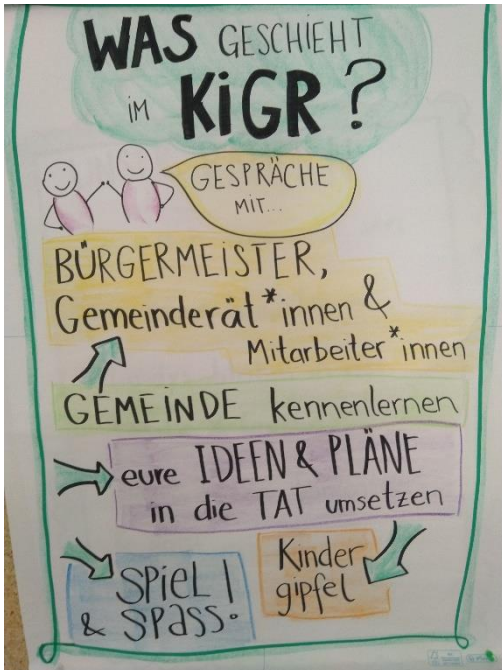 WAS GESCHIEHT
im KiGR?
GESPRÄCHE
MIT...
BÜRGERMEISTER,
Gemeinderät*innen &
Mitarbeiter*innen
GEMEINDE kennenlernen
eure IDEEN & PLÄNE
in die TAT umsetzen
SPiEL!
& SPASS.
Kinder
gipfel